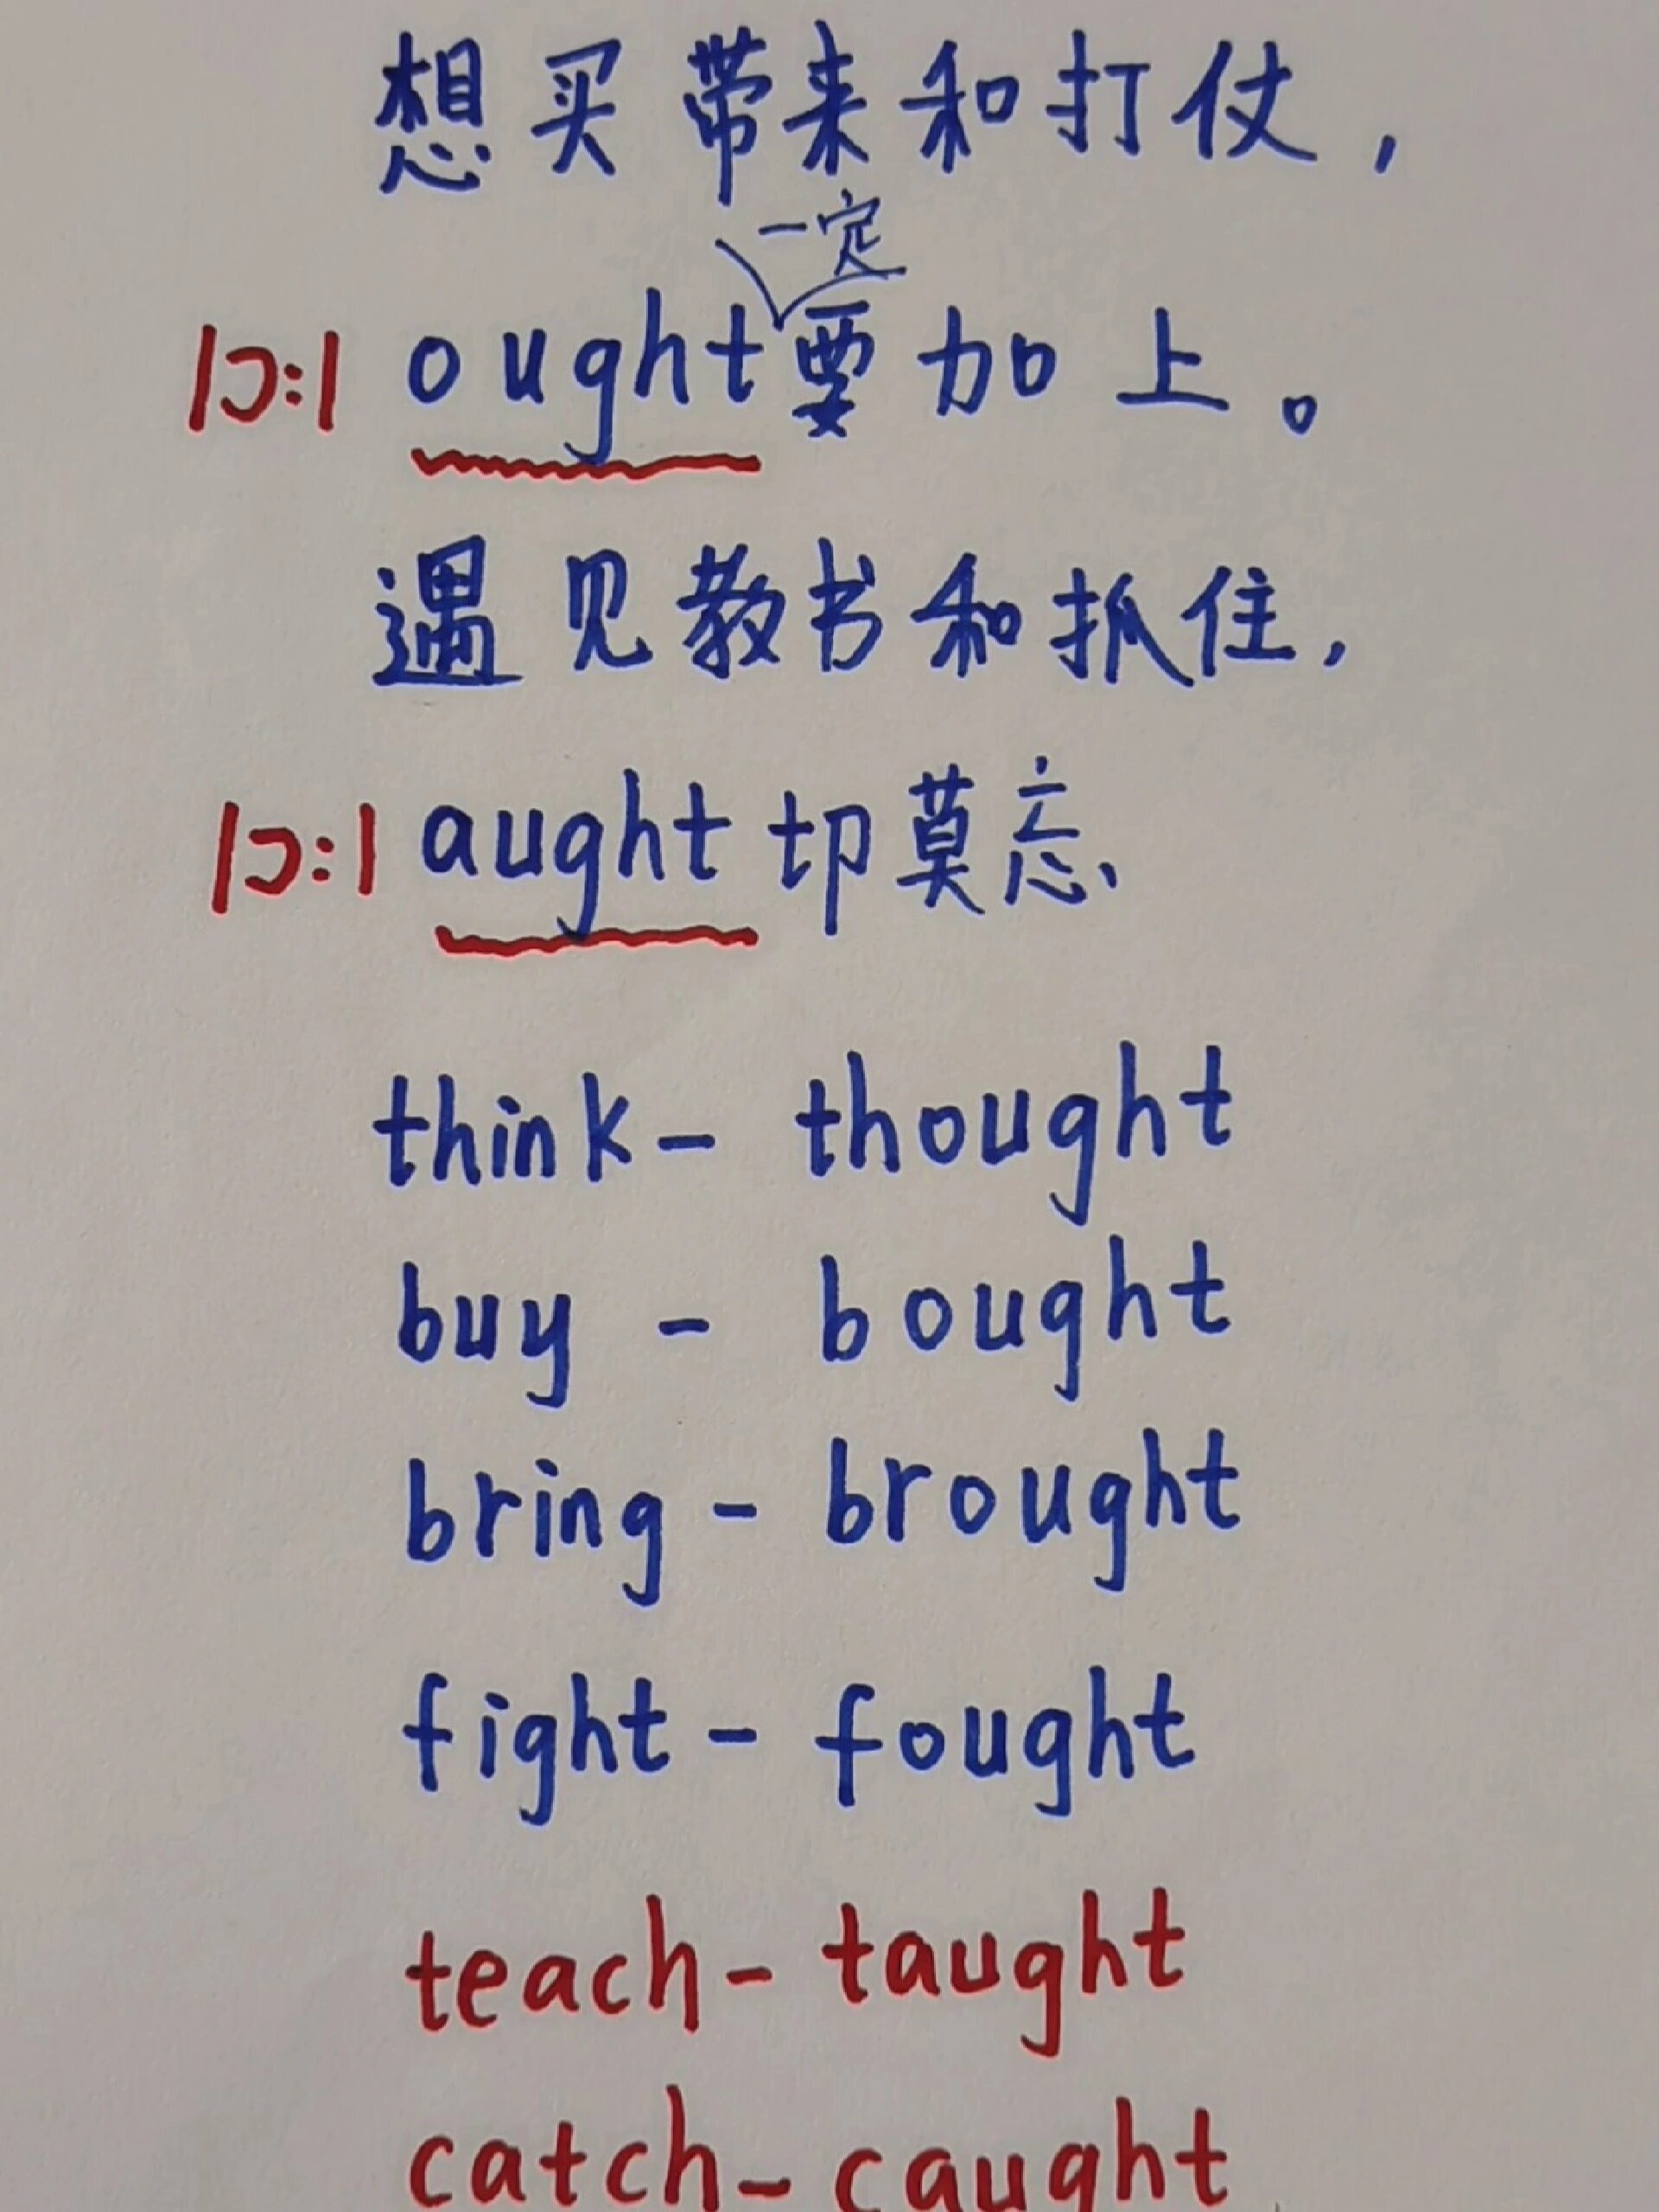 想买带来和打仗，
/ɔ:/ ought一定要加上。
遇见教书和抓住，
/ɔ:/ aught切莫忘
think - thought
buy - bought
bring - brought
fight - fought
teach - taught
catch - caught